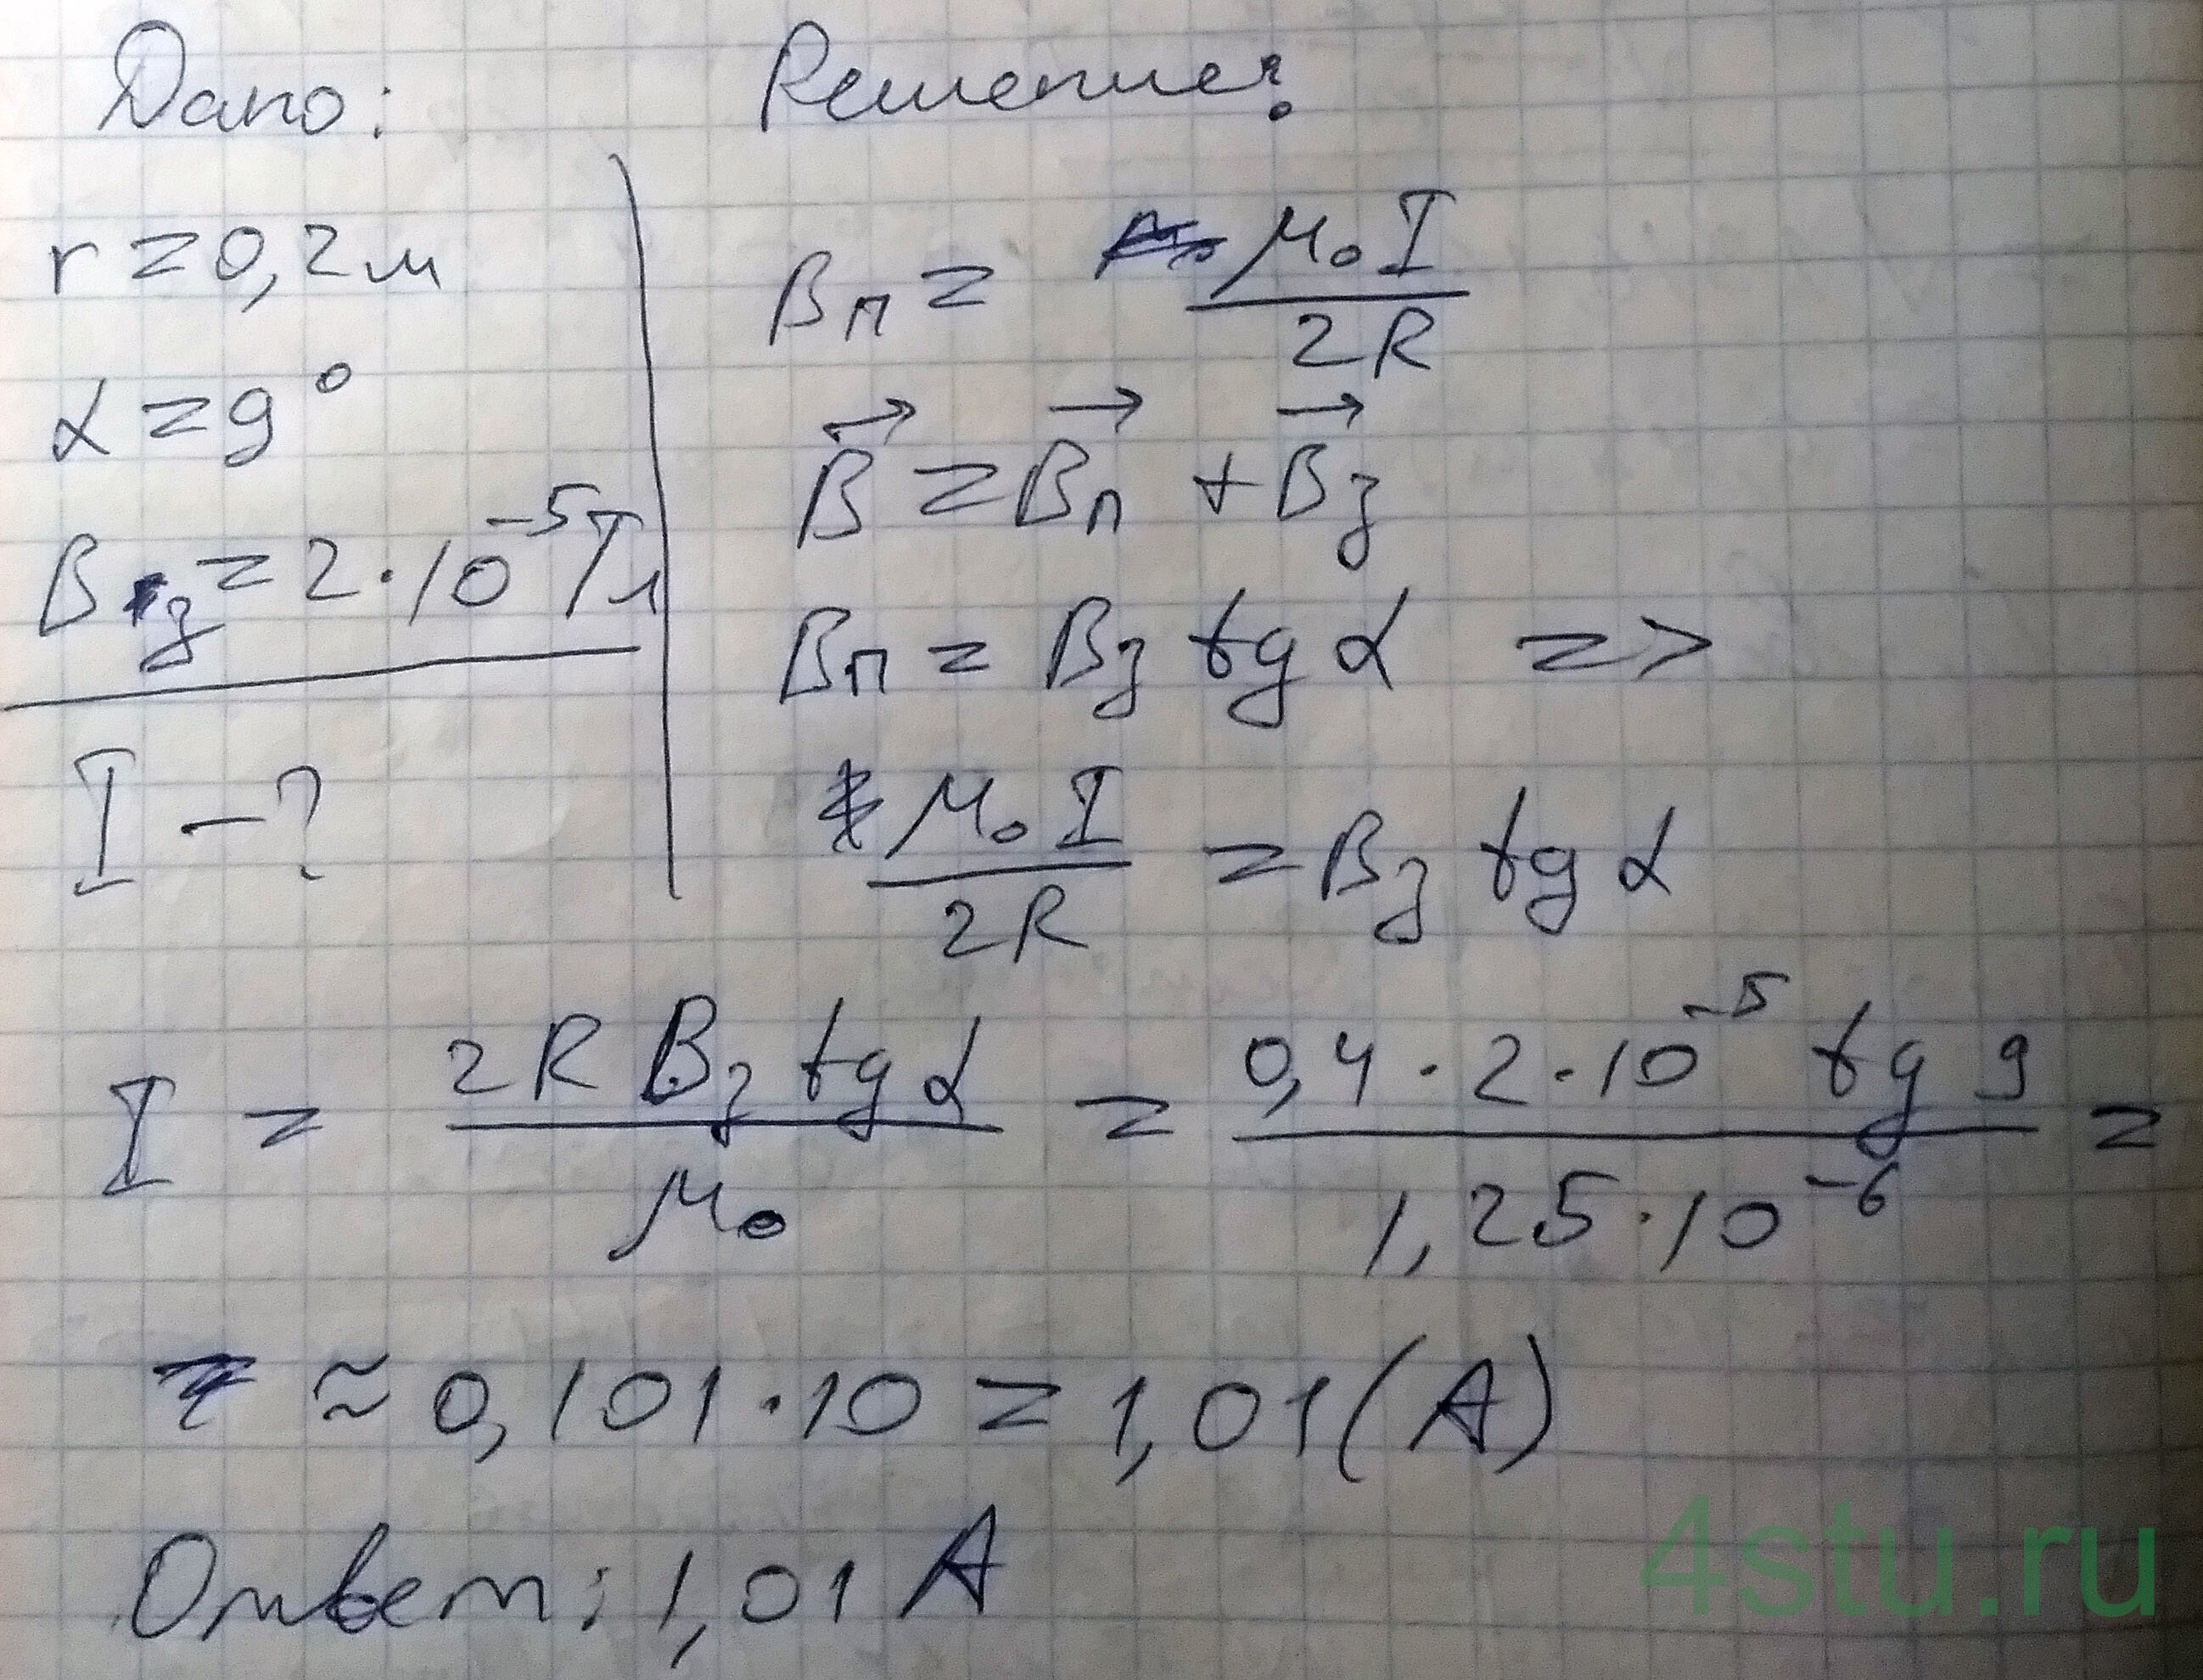 Дано:
r = 0,2 м
α = 9°
Bз = 2·10⁻⁵ Тл
I – ?
Решение:
Bп = μ₀I / 2R
B⃗ = B⃗п + B⃗з
Bп = Bз tg α =>
μ₀I / 2R = Bз tg α
I = 2R Bз tg α / μ₀ = 0,4 · 2 · 10⁻⁵ tg 9 / 1,25 · 10⁻⁶ =
≈ 0,101 · 10 = 1,01 (А)
Ответ: 1,01 А
4stu.ru